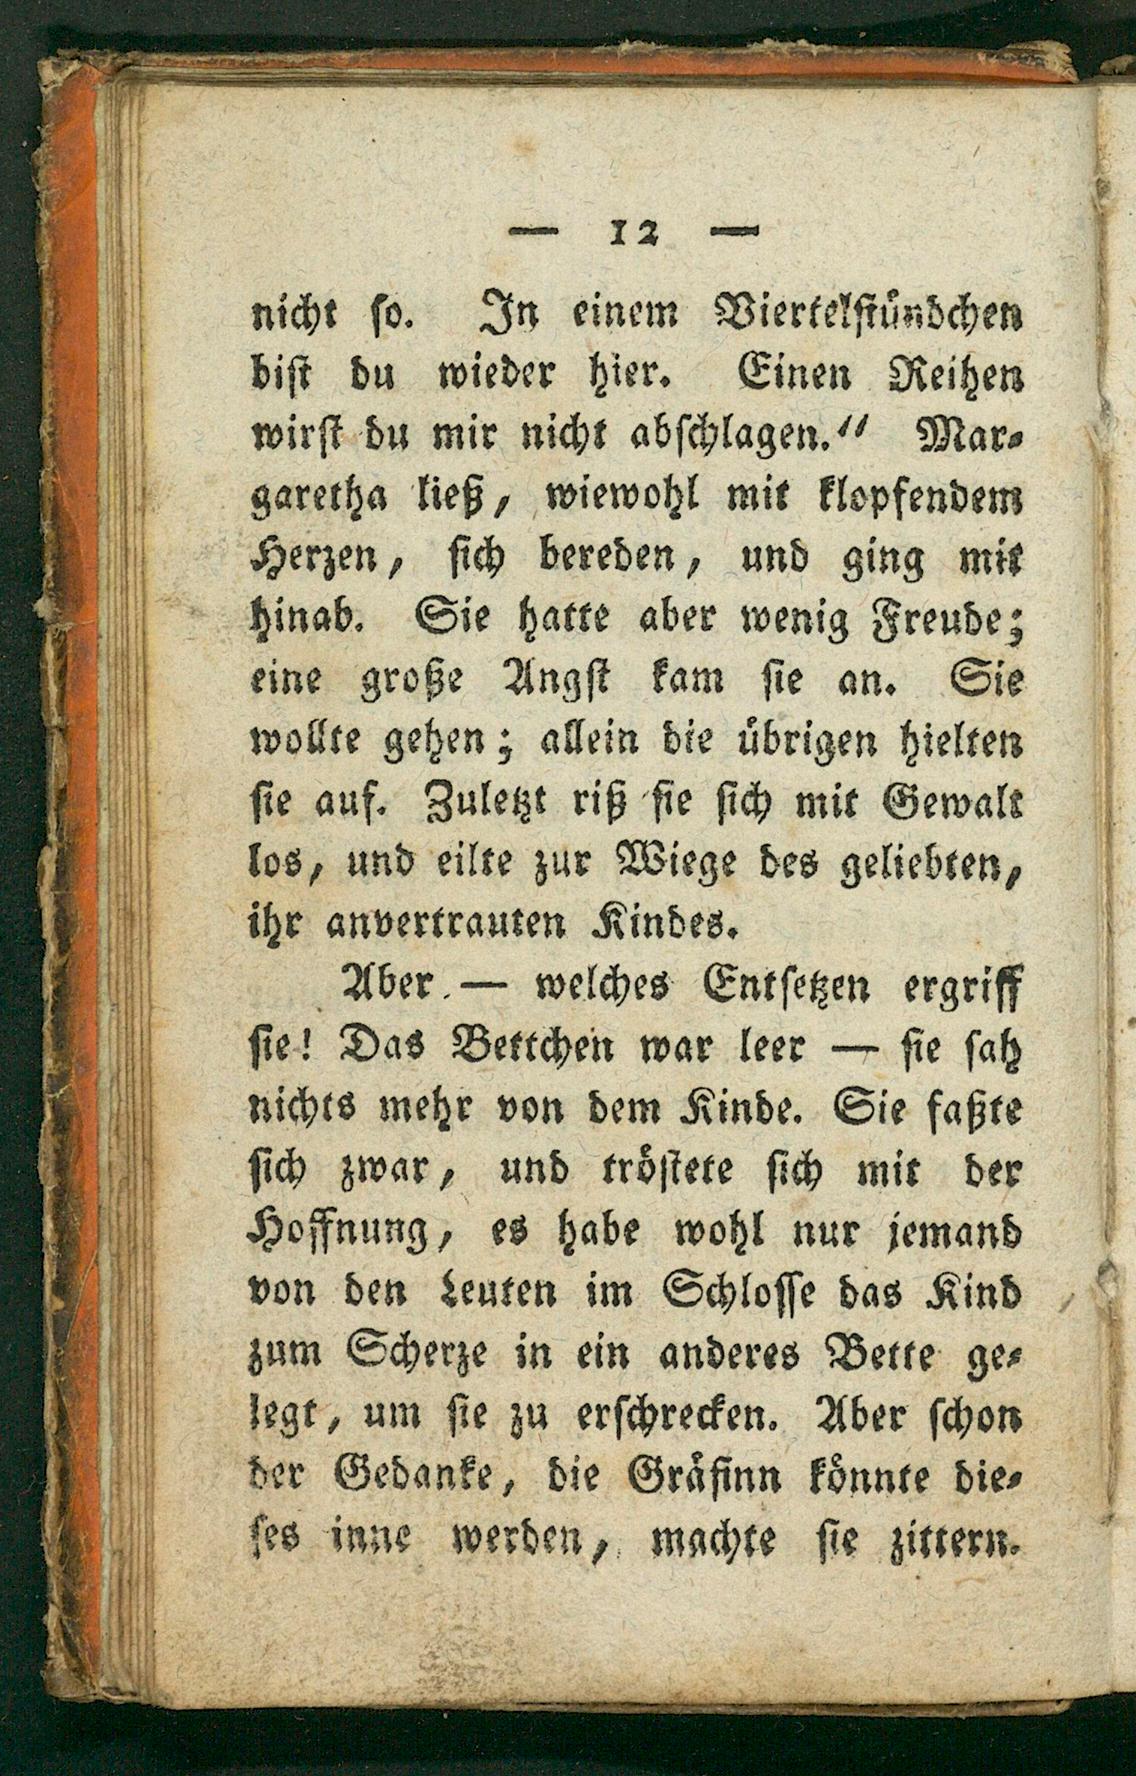 — 12 —
nicht so. In einem Viertelstündchen
bist du wieder hier. Einen Reihen
wirst du mir nicht abschlagen.“ Mar-
garetha ließ, wiewohl mit klopfendem
Herzen, sich bereden, und ging mit
hinab. Sie hatte aber wenig Freude;
eine große Angst kam sie an. Sie
wollte gehen; allein die übrigen hielten
sie auf. Zuletzt riß sie sich mit Gewalt
los, und eilte zur Wiege des geliebten,
ihr anvertrauten Kindes.
Aber — welches Entsetzen ergriff
sie! Das Bettchen war leer — sie sah
nichts mehr von dem Kinde. Sie faßte
sich zwar, und tröstete sich mit der
Hoffnung, es habe wohl nur jemand
von den Leuten im Schlosse das Kind
zum Scherze in ein anderes Bette ge-
legt, um sie zu erschrecken. Aber schon
der Gedanke, die Gräfinn könnte die-
ses inne werden, machte sie zittern.